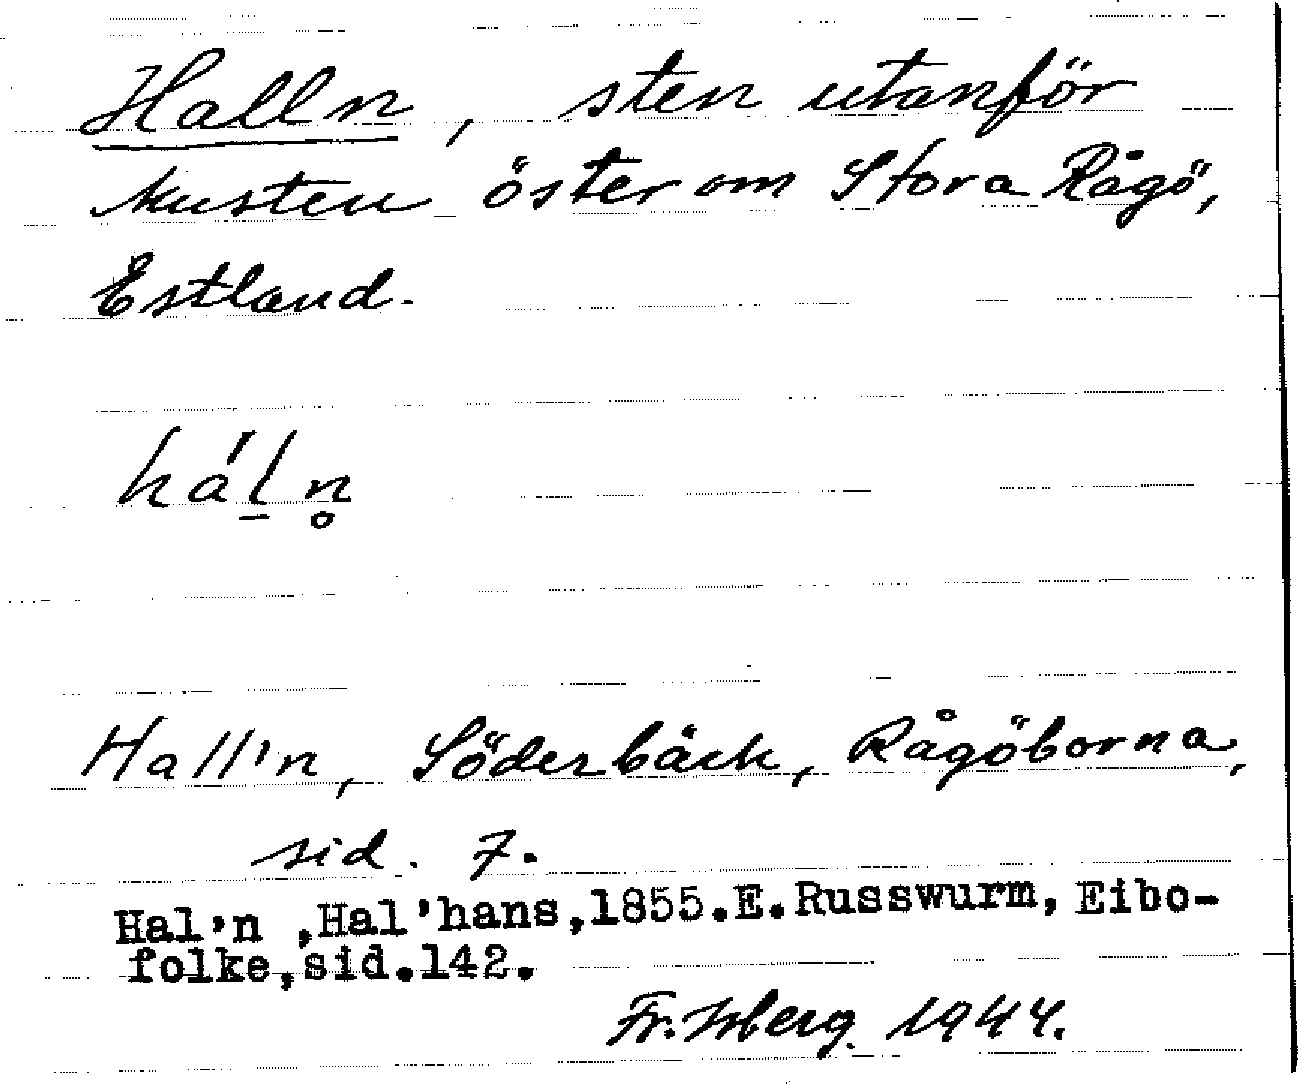 Halln, sten utanför
kusten öster om Stora Rågö,
Estland.
há́l̠n̥
Hall'n, Söderbäck, Rågöborna,
sid. 7.
Hal'n ,Hal'hans,1855.E.Russwurm, Eibo-
folke,sid.142.
Fr. Isberg. 1944.